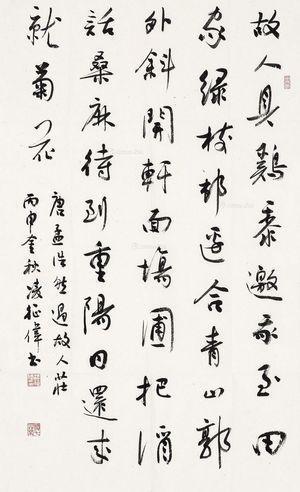 故人具鷄黍邀我至田
家綠樹邨邊合青山郭
外斜開軒面場圃把酒
話桑麻待到重陽日還来
就菊花
唐孟浩然過故人莊
丙申金秋凌征偉书